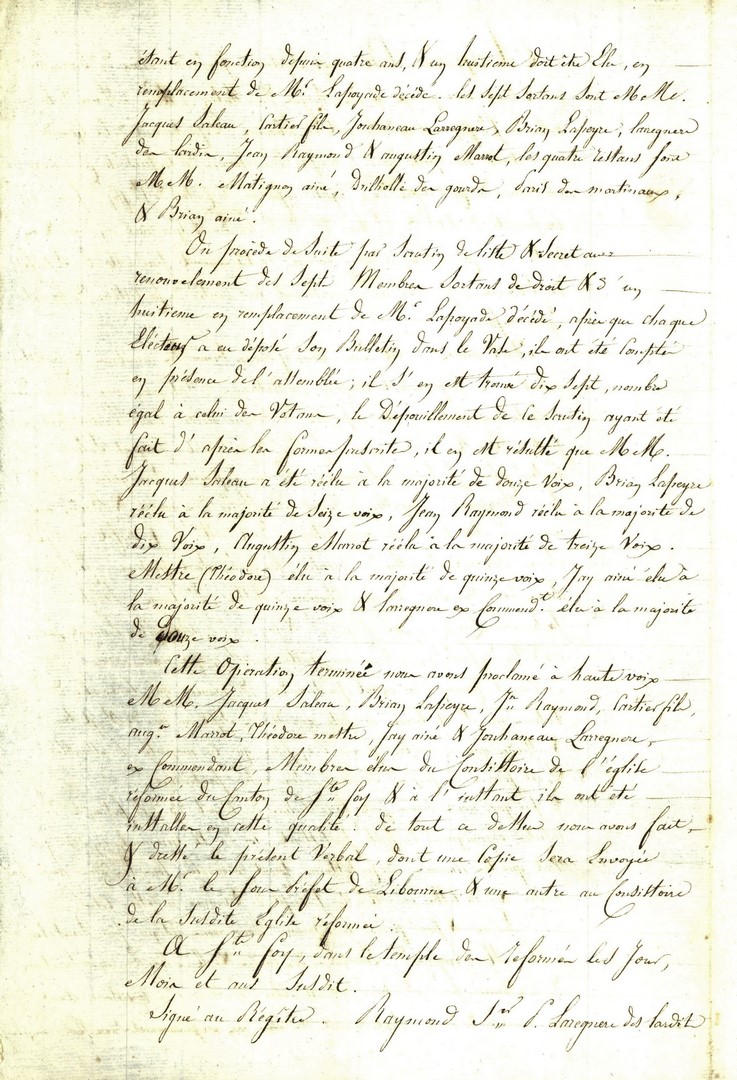 étant en fonction depuis quatre ans, & un huitieme doit être Elu, en
remplacement de Mr. Lapoyade décédé. les sept Sortans Sont M.M.
Jacques Saleau, Cartier fils, Jouhaneau Larregnere, Brian Lapeyre, laregnere
des lardin, Jean Raymond & augustin Marrot, les quatre restans sont
M.M. Matignon ainé, Drilholle des gourds, Paris des martinaux,
& Brian ainé.
On procède de Suite par Scrutin de liste & Secret au
renouvelement des Sept Membres Sortans de droit & d'un
huitieme en remplacement de Mr. Lapoyade décédé, après que chaque
Electeur a eu déposé Son Bulletin dans le Vase, ils ont été Comptés
en présence de l'assemblée; il s'en est trouvé dix Sept, nombre
égal à celui des Votans, le Dépouillement de ce Scrutin ayant été
fait d'après les formes prescrites, il en est résulté que M.M.
Jacques Saleau a été réélu à la majorité de douze Voix, Brian Lapeyre
réélu à la majorité de Seize voix, Jean Raymond réélu à la majorité de
dix Voix, Augustin Marrot réélu à la majorité de treize Voix.
Mestre (Théodore) élu à la majorité de quinze voix, Jay ainé élu à
la majorité de quinze voix & larregnere ex Commendt. élu à la majorité
de douze voix.
Cette Opération terminée nous avons proclamé à haute voix
M.M. Jacques Saleau, Brian Lapeyre, Jn Raymond, Cartier fils,
augn. Marrot, Théodore mestre, Jay ainé & Jouhaneau Larregnere,
ex Commendant, Membres élus du Consistoire de l'église
réformée du Canton de Ste Foy & à l'instant ils ont été
installés en cette qualité. de tout ce dessus nous avons fait
& dressé le présent Verbal, dont une Copie Sera Envoyée
à Mr. le Sous Préfet de Libourne & une autre au Consistoire
de la Susdite Eglise réformée.
A Ste Foy, dans le temple des réformés les Jour,
Mois et ans Susdit.
Signé au Régître. Raymond P. Laregnere des lardit